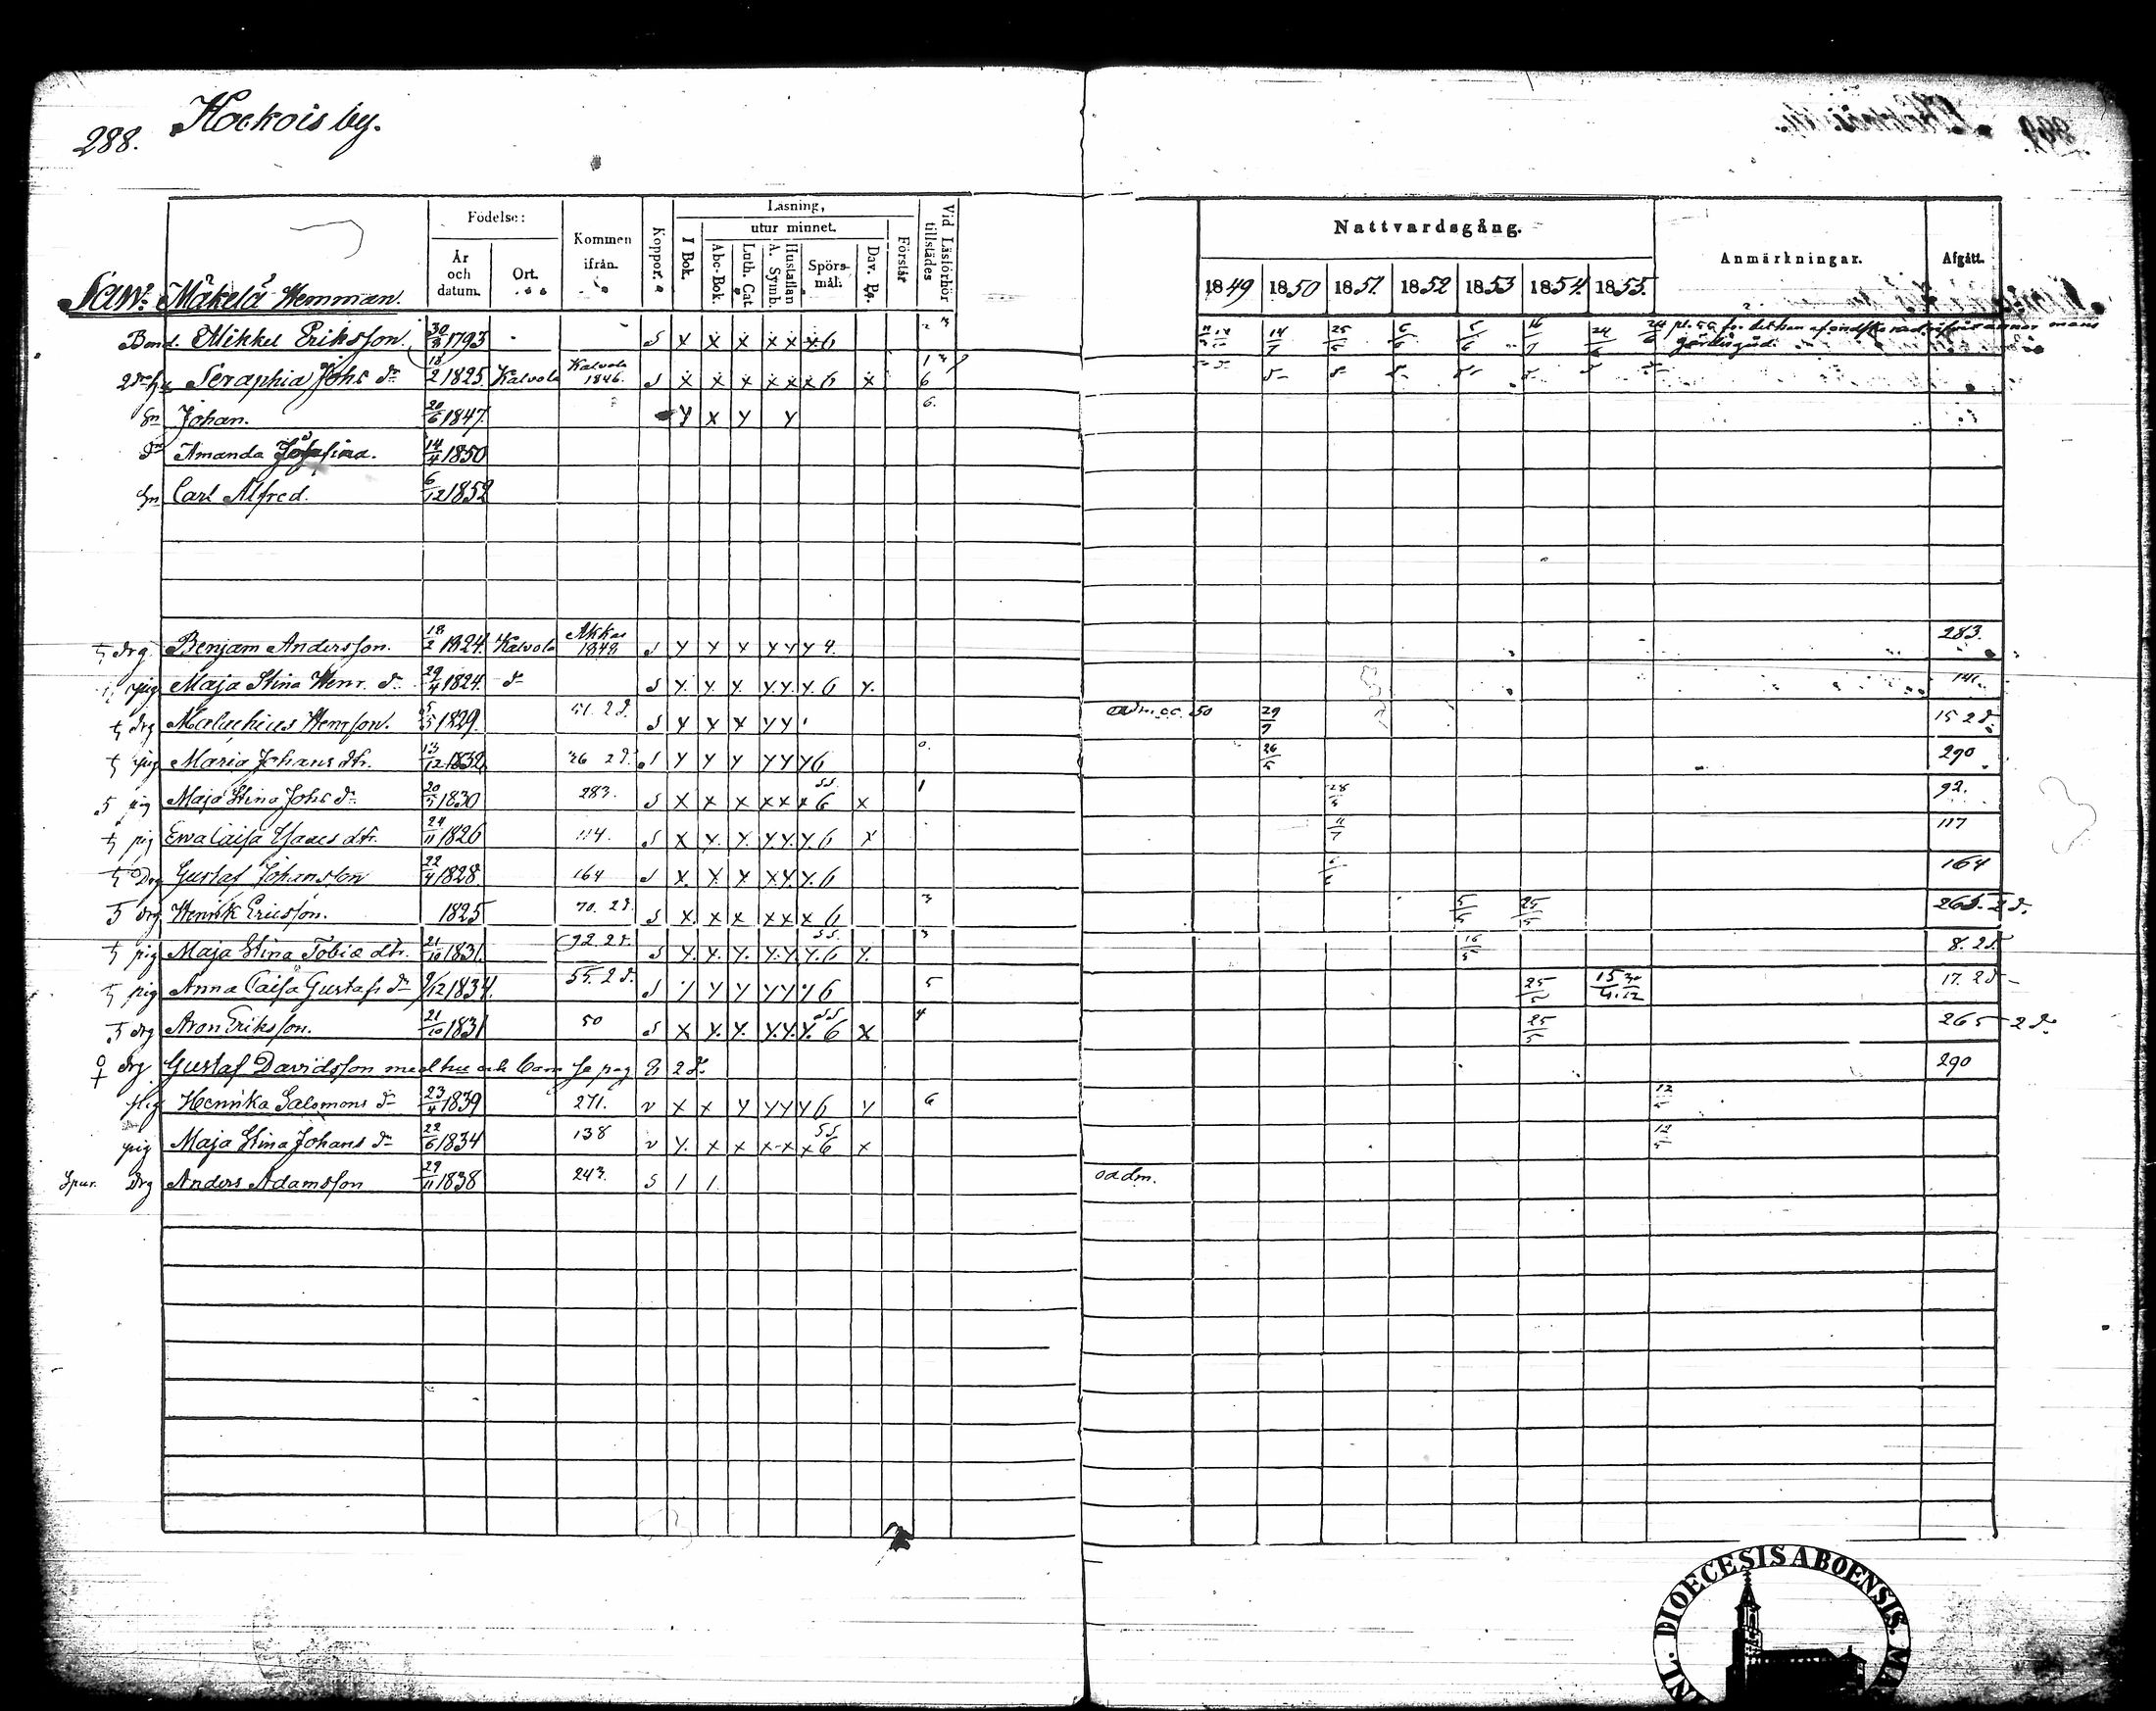 288. Hockois by.
Födelse: Kommen ifrån. Koppor. Läsning, Vid Läsförhör tillstädes Nattvardsgång. Anmärkningar. Afgått.
År och datum. Ort. I Bok. utur minnet. Förstår
Abc-Bok. Luth. Cat. A. Symb. Hustaflan Spörsmål. Dav. Ps.
1849 1850 1851. 1852 1853 1854. 1855.
Mäkelä Hemman.
Bond. Mikkel Eriksson. 30/8 1793 S X X X X X X 6
Seraphia Johs dr 18/2 1825. Kalvola Kalvola 1846. S X X X X X X 6 X 6
Sn Johan. 20/6 1847. Y X Y Y 6.
dr Amanda Josefina. 14/4 1850
Sn Carl Alfred. 6/12 1852
drg Benjam Andersson. 18/2 1824. Kalvola Akkas 1848 S Y Y Y Y Y Y 4. 283.
pig Maja Stina Henr. dr 29/4 1824. do S Y. Y. Y. Y. Y. Y. 6 Y. 141.
drg Henrsson. 5/5 1829. 51. 2 d. S Y Y X Y Y 50 29/7 15 2 d.
pig Maria Johans dtr. 13/12 1832 26 2 d. S Y Y Y Y Y Y 6 26/5 290
pig Maja Stina Johs dr 20/5 1830 283. S X X X X X X 6 X 1 28/5 92.
pig Ewa Caisa Isaacs dtr. 24/11 1826 114. S X Y. Y. Y. Y. Y. 6 X 11/7 117
Drg Gustaf Johansson 22/4 1828 164 S X. Y. Y. X. Y. Y. 6 164
drg Henrik Ericsson. 1825 70. 2 d. S X. X X X X X 6 3 5/5 25/5 265. 2 d.
pig Maja Stina Tobiæ dtr. 21/10 1831. 92. 2 d. S Y. Y. Y. Y. Y. Y. 6 Y. 3 16/5 8. 2 d.
pig Anna Caisa Gustafs dr 9/12 1834. 55. 2 d. S Y Y Y Y Y Y 6 5 25/5 15/4. 30/12 17. 2 d
drg Aron Eriksson. 21/10 1831 50 S X Y. Y. Y. Y. Y. 6 X 4 25/5 265 2 d.
drg Gustaf Davidsson med hu och Barn Se pag 8 2 d. 290
Henrika Salomons dr 23/4 1839 271. v X X Y Y Y Y 6 Y 6 12/5
pig Maja Stina Johans dr 22/6 1834 138 v Y. X X X X X 6 X 12/5
Drg Anders Adamsson 29/11 1838 243. S 1 1 oadm.
INL. DIOECESIS ABOENSIS. MA